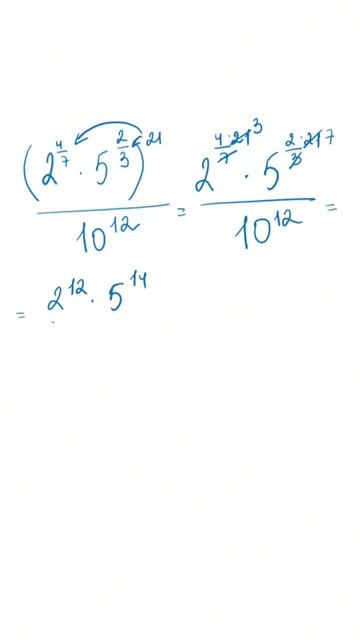 (2^{4/7} · 5^{2/3})^{21} / 10^{12} = 2^{4·21/7 3} · 5^{2·21/3 7} / 10^{12} =
= 2^{12} · 5^{14}